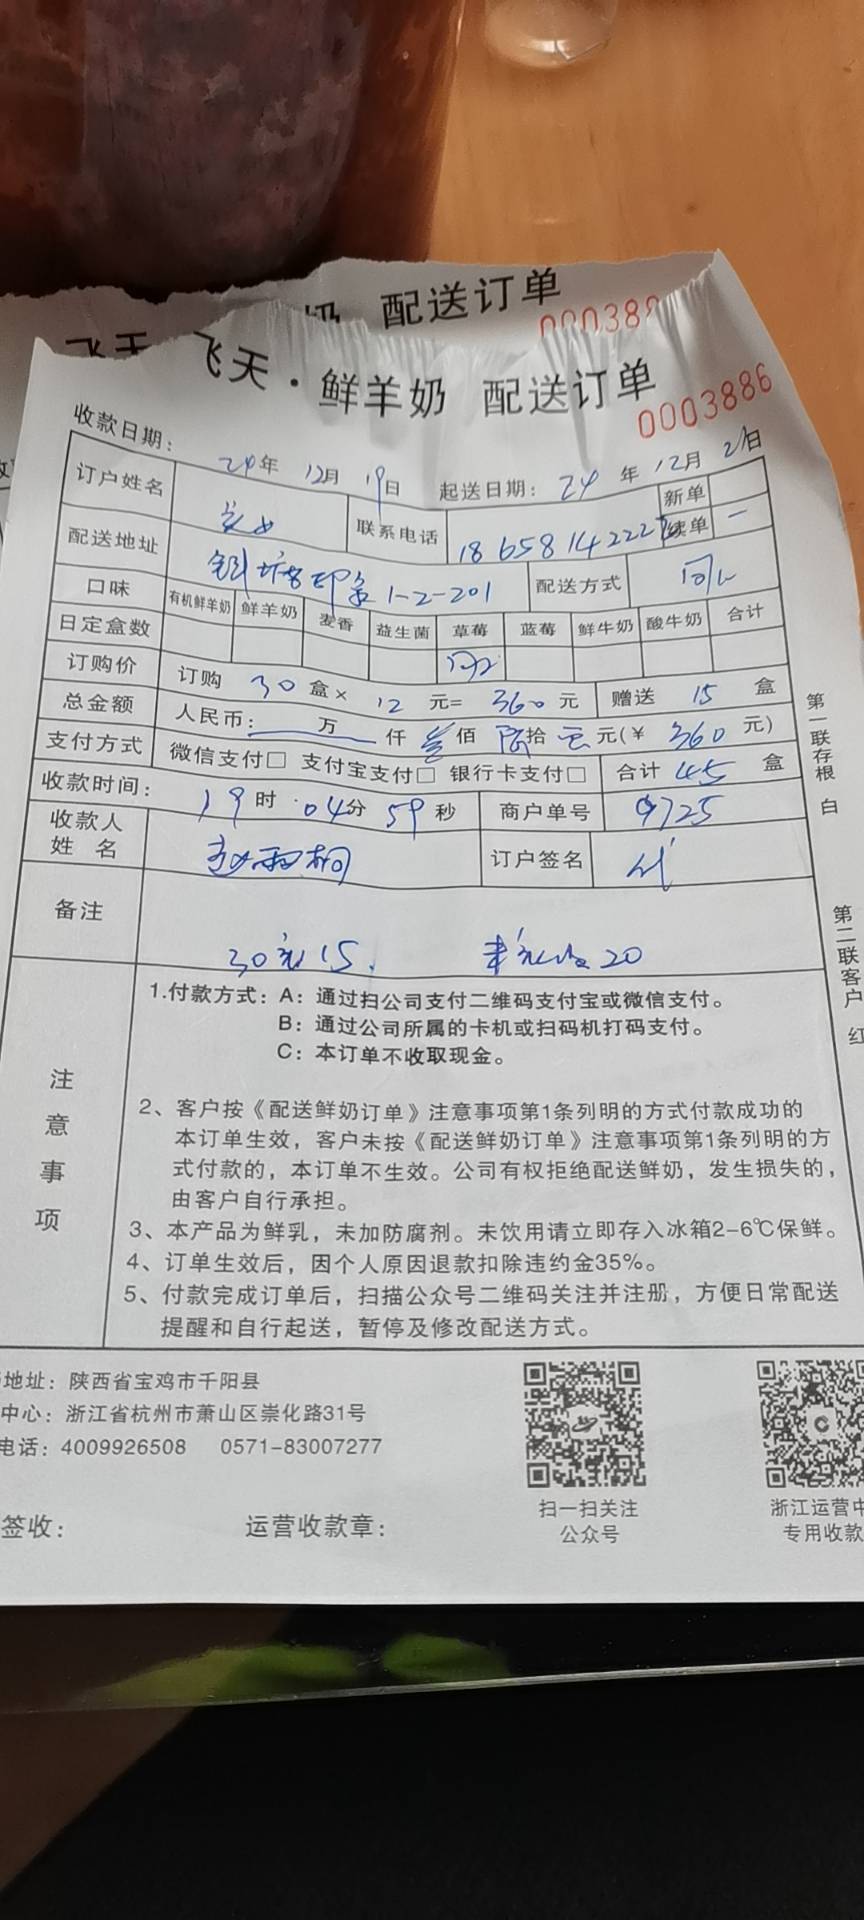 配送订单
飞天·鲜羊奶 配送订单
0003886
收款日期： 24年 12月 19日 起送日期： 24年 12月 21日
订户姓名 联系电话 新单
续单
配送地址 1-2-201 配送方式
口味 有机鲜羊奶 鲜羊奶 麦香 益生菌 草莓 蓝莓 鲜牛奶 酸牛奶 合计
日定盒数
订购价 订购 30 盒× 12 元= 360 元 赠送 15 盒
总金额 人民币： 万 仟 叁佰 陆拾 元(￥ 360 元)
支付方式 微信支付□ 支付宝支付□ 银行卡支付□ 合计 45 盒
收款时间： 19时 04分 59秒 商户单号 9725
收款人
姓 名 赵雨桐 订户签名
备注 30 15 20
第一联存根 白
第二联客户 红
注意事项
1.付款方式：A：通过扫公司支付二维码支付宝或微信支付。
B：通过公司所属的卡机或扫码机打码支付。
C：本订单不收取现金。
2、客户按《配送鲜奶订单》注意事项第1条列明的方式付款成功的
本订单生效，客户未按《配送鲜奶订单》注意事项第1条列明的方
式付款的，本订单不生效。公司有权拒绝配送鲜奶，发生损失的，
由客户自行承担。
3、本产品为鲜乳，未加防腐剂。未饮用请立即存入冰箱2-6℃保鲜。
4、订单生效后，因个人原因退款扣除违约金35%。
5、付款完成订单后，扫描公众号二维码关注并注册，方便日常配送
提醒和自行起送，暂停及修改配送方式。
地址：陕西省宝鸡市千阳县
中心：浙江省杭州市萧山区崇化路31号
电话：4009926508 0571-83007277
扫一扫关注
公众号
浙江运营中
专用收款
签收： 运营收款章：